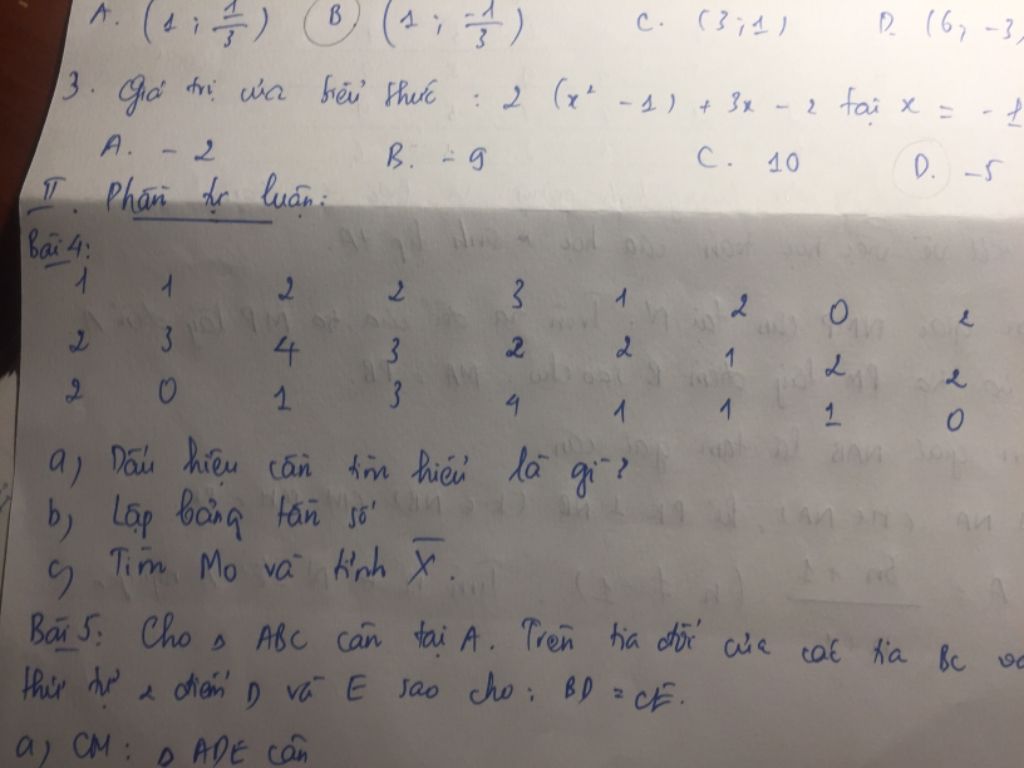 A. (1 ; 1/3) B (1 ; -1/3) C. (3 ; 1) D. (6, -3)
3. Giá trị của biểu thức : 2 (x² - 1) + 3x - 2 tại x = - 1
A. - 2 B. - 9 C. 10 D. -5
II. Phần tự luận:
Bài 4:
1 1 2 2 3 1 2 0 2
2 3 4 3 2 2 1 2 2
2 0 1 3 4 1 1 1 0
a) Dấu hiệu cần tìm hiểu là gì?
b) Lập bảng tần số
c) Tìm Mo và tính X̅.
Bài 5: Cho Δ ABC cân tại A. Trên tia đối của các tia BC
thứ tự 2 điểm D và E sao cho : BD = CE.
a) CM : Δ ADE cân